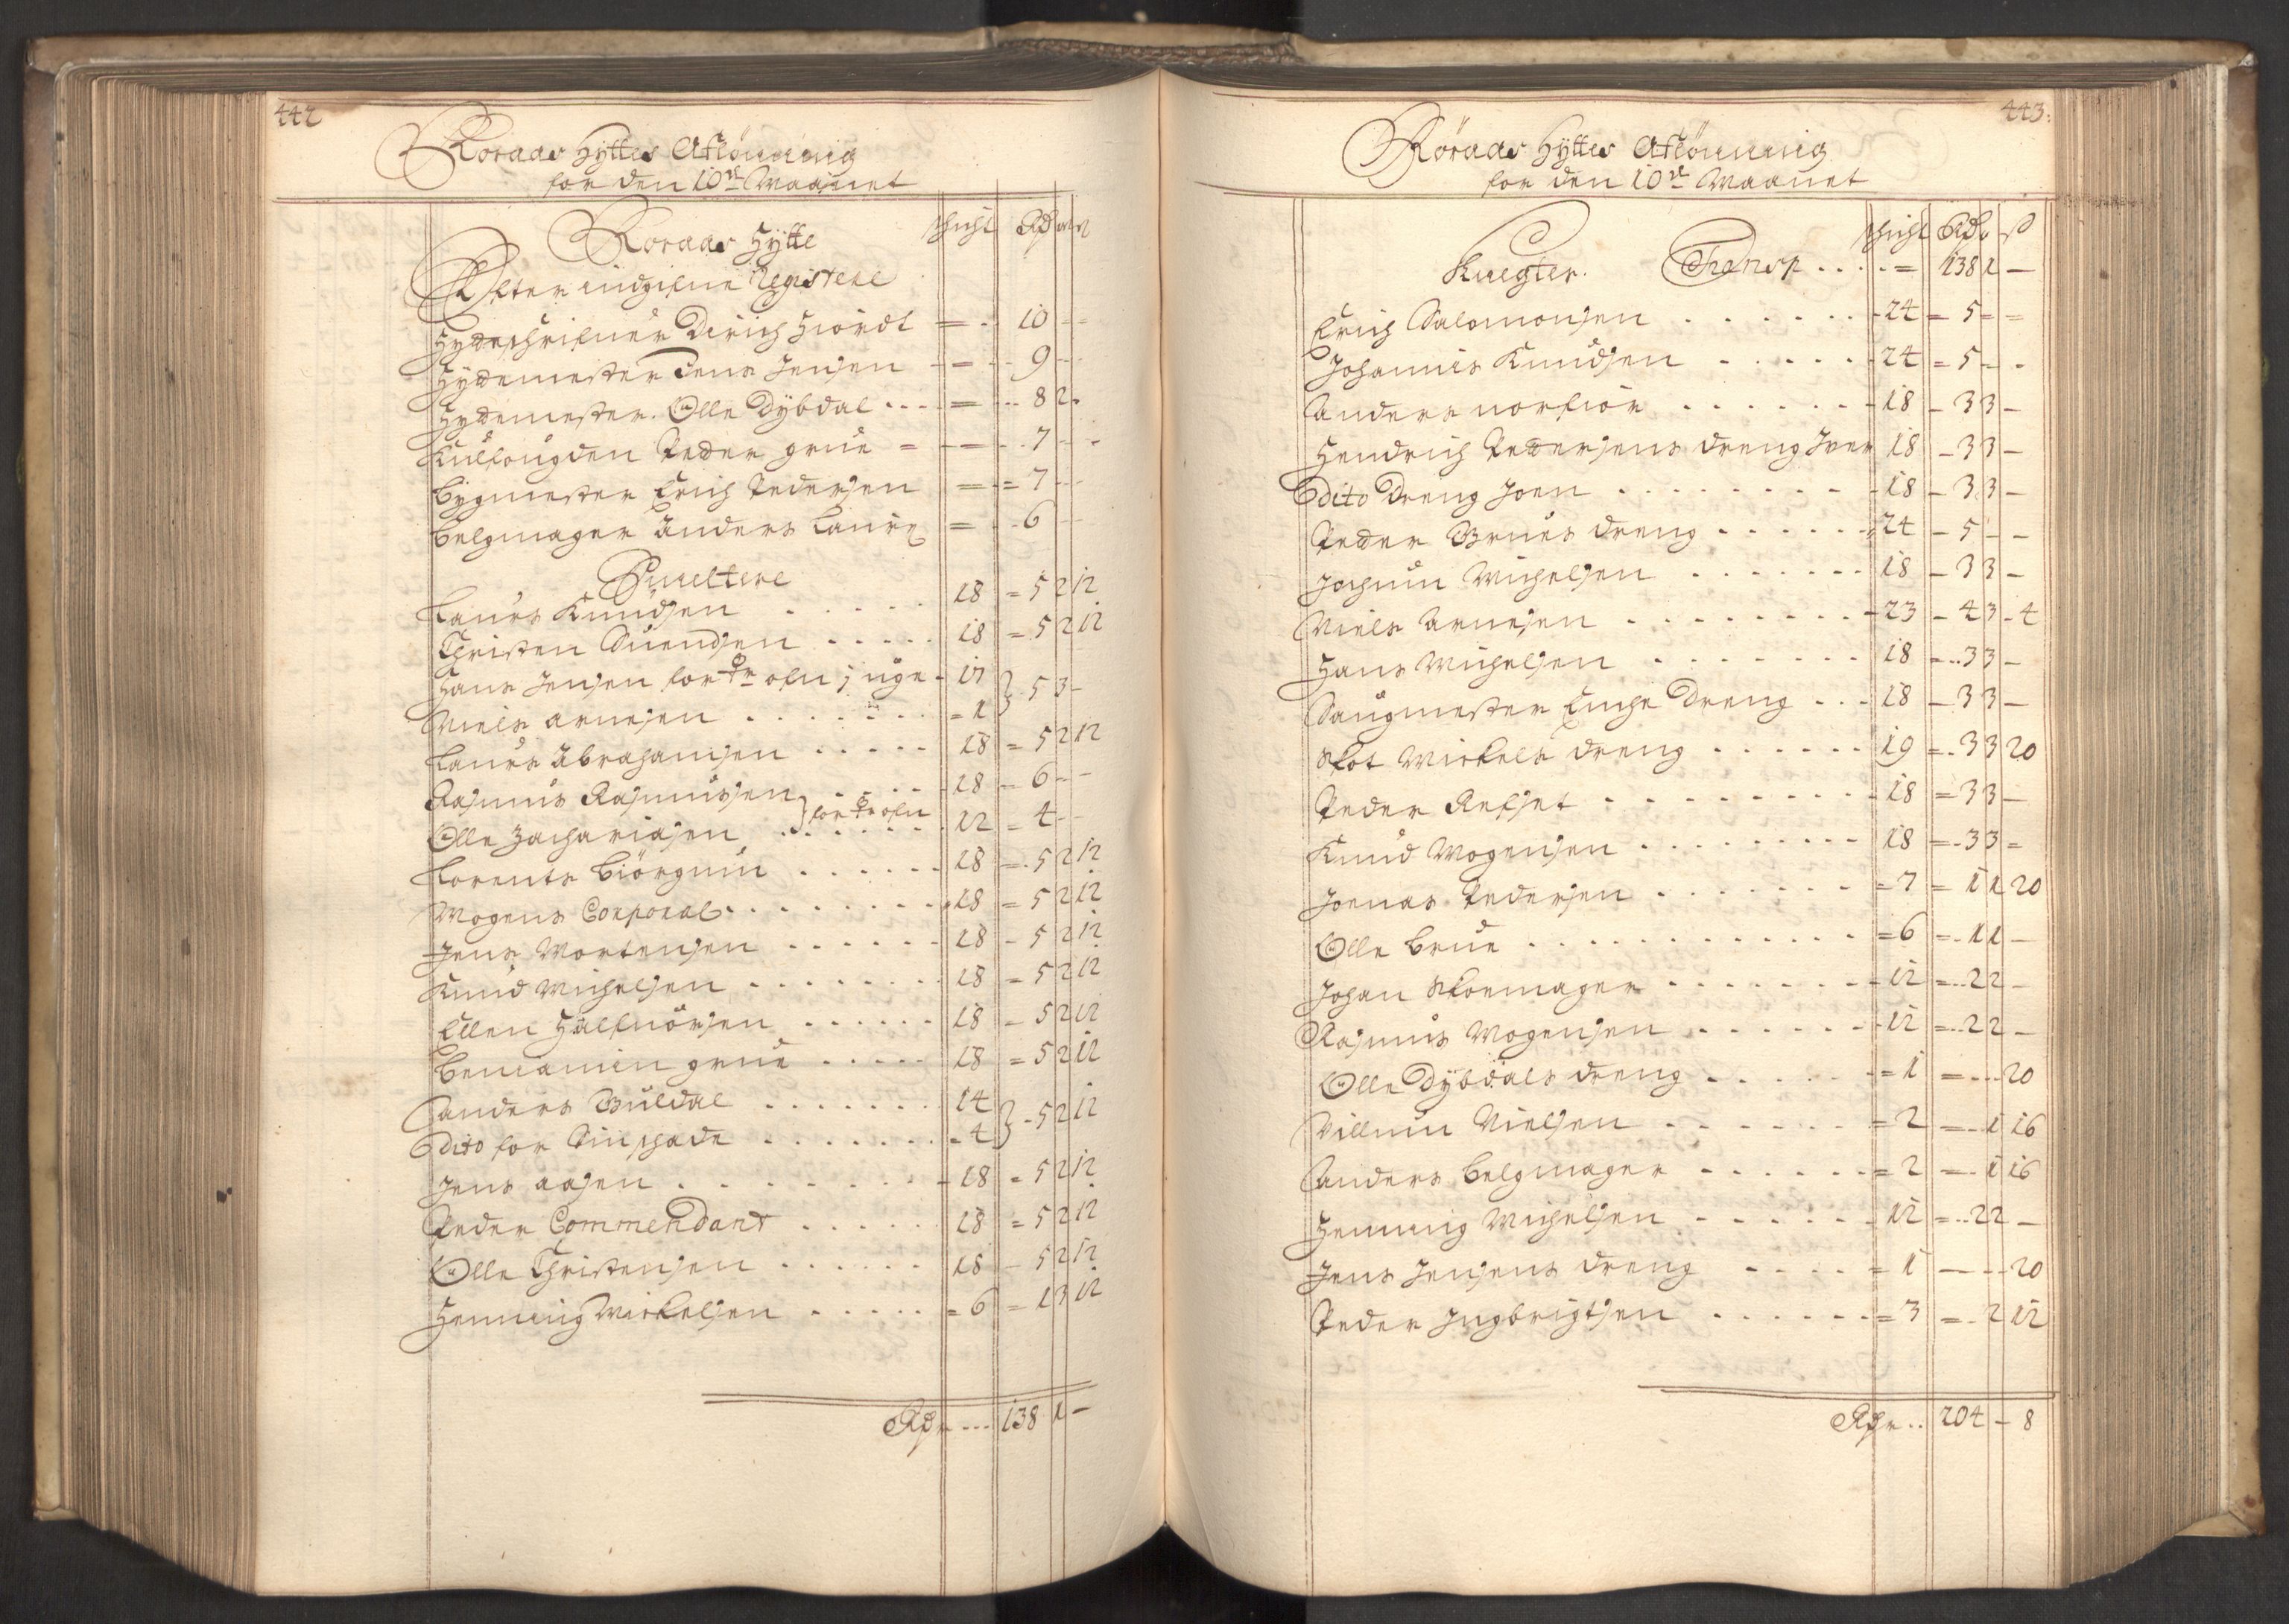 442
Röraas Hyttes Aflönning
for den 10de Maanet
Röraas Hytte
Schicht Rdr
Efter indgifne Registere
Hytteschrifuer Dirich Hiordt = 10 - -
Hyttemester Jens Jensen - = - 9 - -
Hyttemester Olle Dybdal . . . = . . 8 2 -
Kulfougden Peder grüe = - = - 7 - -
Bygmester Erich Pedersen = = 7 - -
Belgmager Anders Laurs = - 6 - -
Smeltere
Laurs Knudsen . . . . . 18 = 5 2 12
Christen Suendsen . . . . . 18 = 5 2 12
Hans Jensen for ofn j uge - 17
Niels arnesen . . . . . . . = 1 } 5 3 -
Laurs Abrahamsen . . . . . 18 = 5 2 12
Rasmus Rasmussen . . . . 18 - 6 - -
} for ofn
Olle Zachariasen . . . . . . . 12 = 4 - -
Lorents Biörguin . . . . . . 18 = 5 2 12
Mogens Corporal . . . . . . . 18 = 5 2 12
Jens Mortensen . . . . . . 18 - 5 2 12
Knud Michelsen . . . . . . . 18 = 5 2 12
Ellen Halfuorsen . . . . . . 18 - 5 2 12
Beniamin grüe . . . . . 18 = 5 2 12
Anders Büldal . . . . . . . 14
Dito for . . . . . . . - 4 } - 5 2 12
Jens aasen . . . . . . . . - 18 = 5 2 12
Peder Commendant . . . . . . 18 = 5 2 12
Olle Christensen . . . . . . 18 - 5 2 12
Henning Mickelsen . . . . . = 6 = 1 3 12
Rdr . . . 138 1 -
443:
Röraas Hyttes Aflönning
for den 10de Maanet
Schicht Rdr ß
Knegter. Transp . . . . = 138 1 -
Erich Salomonsen . . . . . . - 24 = 5 = =
Johannes Knudsen . . . . . - 24 = 5 - -
Anders norfior . . . . . . - 18 - 3 3 -
Hendrich Pettersens dreng Iver 18 - 3 3 -
Dito Dreng Joen . . . . . . . . - 18 - 3 3 -
Peder Brues dreng . . . . . . 24 - 5 - -
Jochum Michelsen . . . . . . . 18 - 3 3 -
Niels Arnesen . . . . . . . . - 23 - 4 3 - 4
Hans Michelsen . . . . . . . 18 = 3 3 -
Saugmester Dreng . . . 18 - 3 3 -
Skot Mickels dreng . . . . . . 19 = 3 3 20
Peder Refset . . . . . . . . . - 18 = 3 3 -
Knud Mogensen . . . . . . . . . 18 = 3 3 =
Joenas Pedersen . . . . . . . = 7 = 1 1 20
Olle brue . . . . . . . . . . . . = 6 = 1 1 -
Johan Skoemager . . . . . . . - 12 = 2 2 -
Rasmus Mogensen . . . . . . - 12 = 2 2 -
Olle Dybdals dreng . . . . . = 1 = - - 20
Villum Nielsen . . . . . . = 2 = 1 16
Anders Belgmager . . . . . . = 2 = 1 16
Henning Michelsen . . . . . . 12 = 2 2 -
Jens Jensens dreng . . . . = 1 - - - 20
Peder Ingbrigtsen . . . . . . = 3 = 2 12
Rdr . . 204 - 8